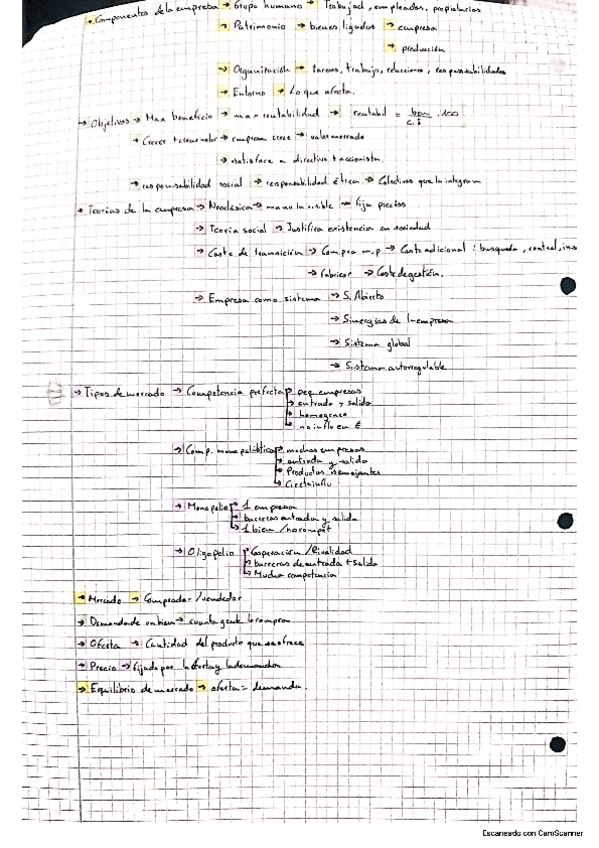 → Componentes de la empresa → Grupo humano → Trabajad, empleados, propietarios
→ Patrimonio → bienes ligados → empresa
→ producción
→ Organización → tareas, trabajo, relaciones, responsabilidades
→ Entorno → Lo que afecta.
→ Objetivos → Max beneficio → max rentabilidad → rentabil = ben/C.S .100
→ Crecer + crear valor → empresa crece → valor mercado
→ satisface a directivo + accionista.
→ responsabilidad social → responsabilidad ética → Colectivos que la integran
→ Teorías de la empresa → Neoclásica → mano invisible → fija precios
→ Teoría social → Justifica existencia en sociedad
→ Coste de transición → Compra m.p → Coste adicional: busqueda, control,
→ fabricar → Coste de gestión.
→ Empresa como sistema → S. Abierto
→ Sinergias de la empresa
→ Sistema global
→ Sistema autorregulable
→ Tipos de mercado → Competencia perfecta → peq empresas
→ entrada y salida
→ homogeneo
→ no influ en €
→ Comp. monopolística → muchas empresas
→ entrada y salida
→ Productos semejantes
→ Cierta influ
→ Monopolio → 1 empresa
→ barreras entrada y salida
→ 1 bien / no compet
→ Oligopolio → Cooperación / Rivalidad
→ barreras de entrada + salida
→ Mucha competencia
→ Mercado → Comprador / vendedor
→ Demanda de un bien → cuanta gente lo compra
→ Oferta → Cantidad del producto que se ofrece
→ Precio → fijado por la oferta y la demanda
→ Equilibrio de mercado → oferta = demanda.
Escaneado con CamScanner